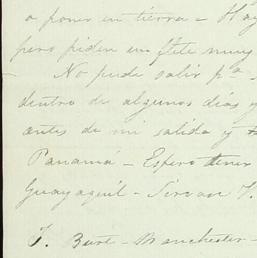 a poner en tierra - Hay
pero piden un flete muy
No pude salir pa -
dentro de algunos dias y
antes de mi salida y
Panamá - Espero tener
Guayaquil - Sirvan
T. Burt - Manchester -